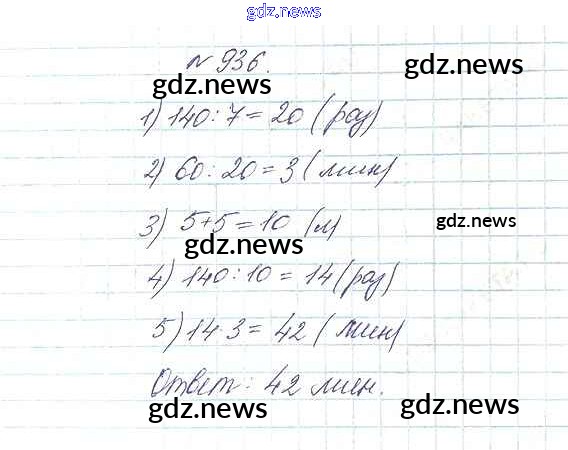 gdz.news
№ 936.
gdz.news
gdz.news
1) 140 : 7 = 20 (раз)
2) 60 : 20 = 3 (мин)
3) 5+5 = 10 (л)
gdz.news
gdz.news
4) 140 : 10 = 14 (раз)
5) 14 · 3 = 42 (мин)
Ответ: 42 мин.
gdz.news
gdz.news